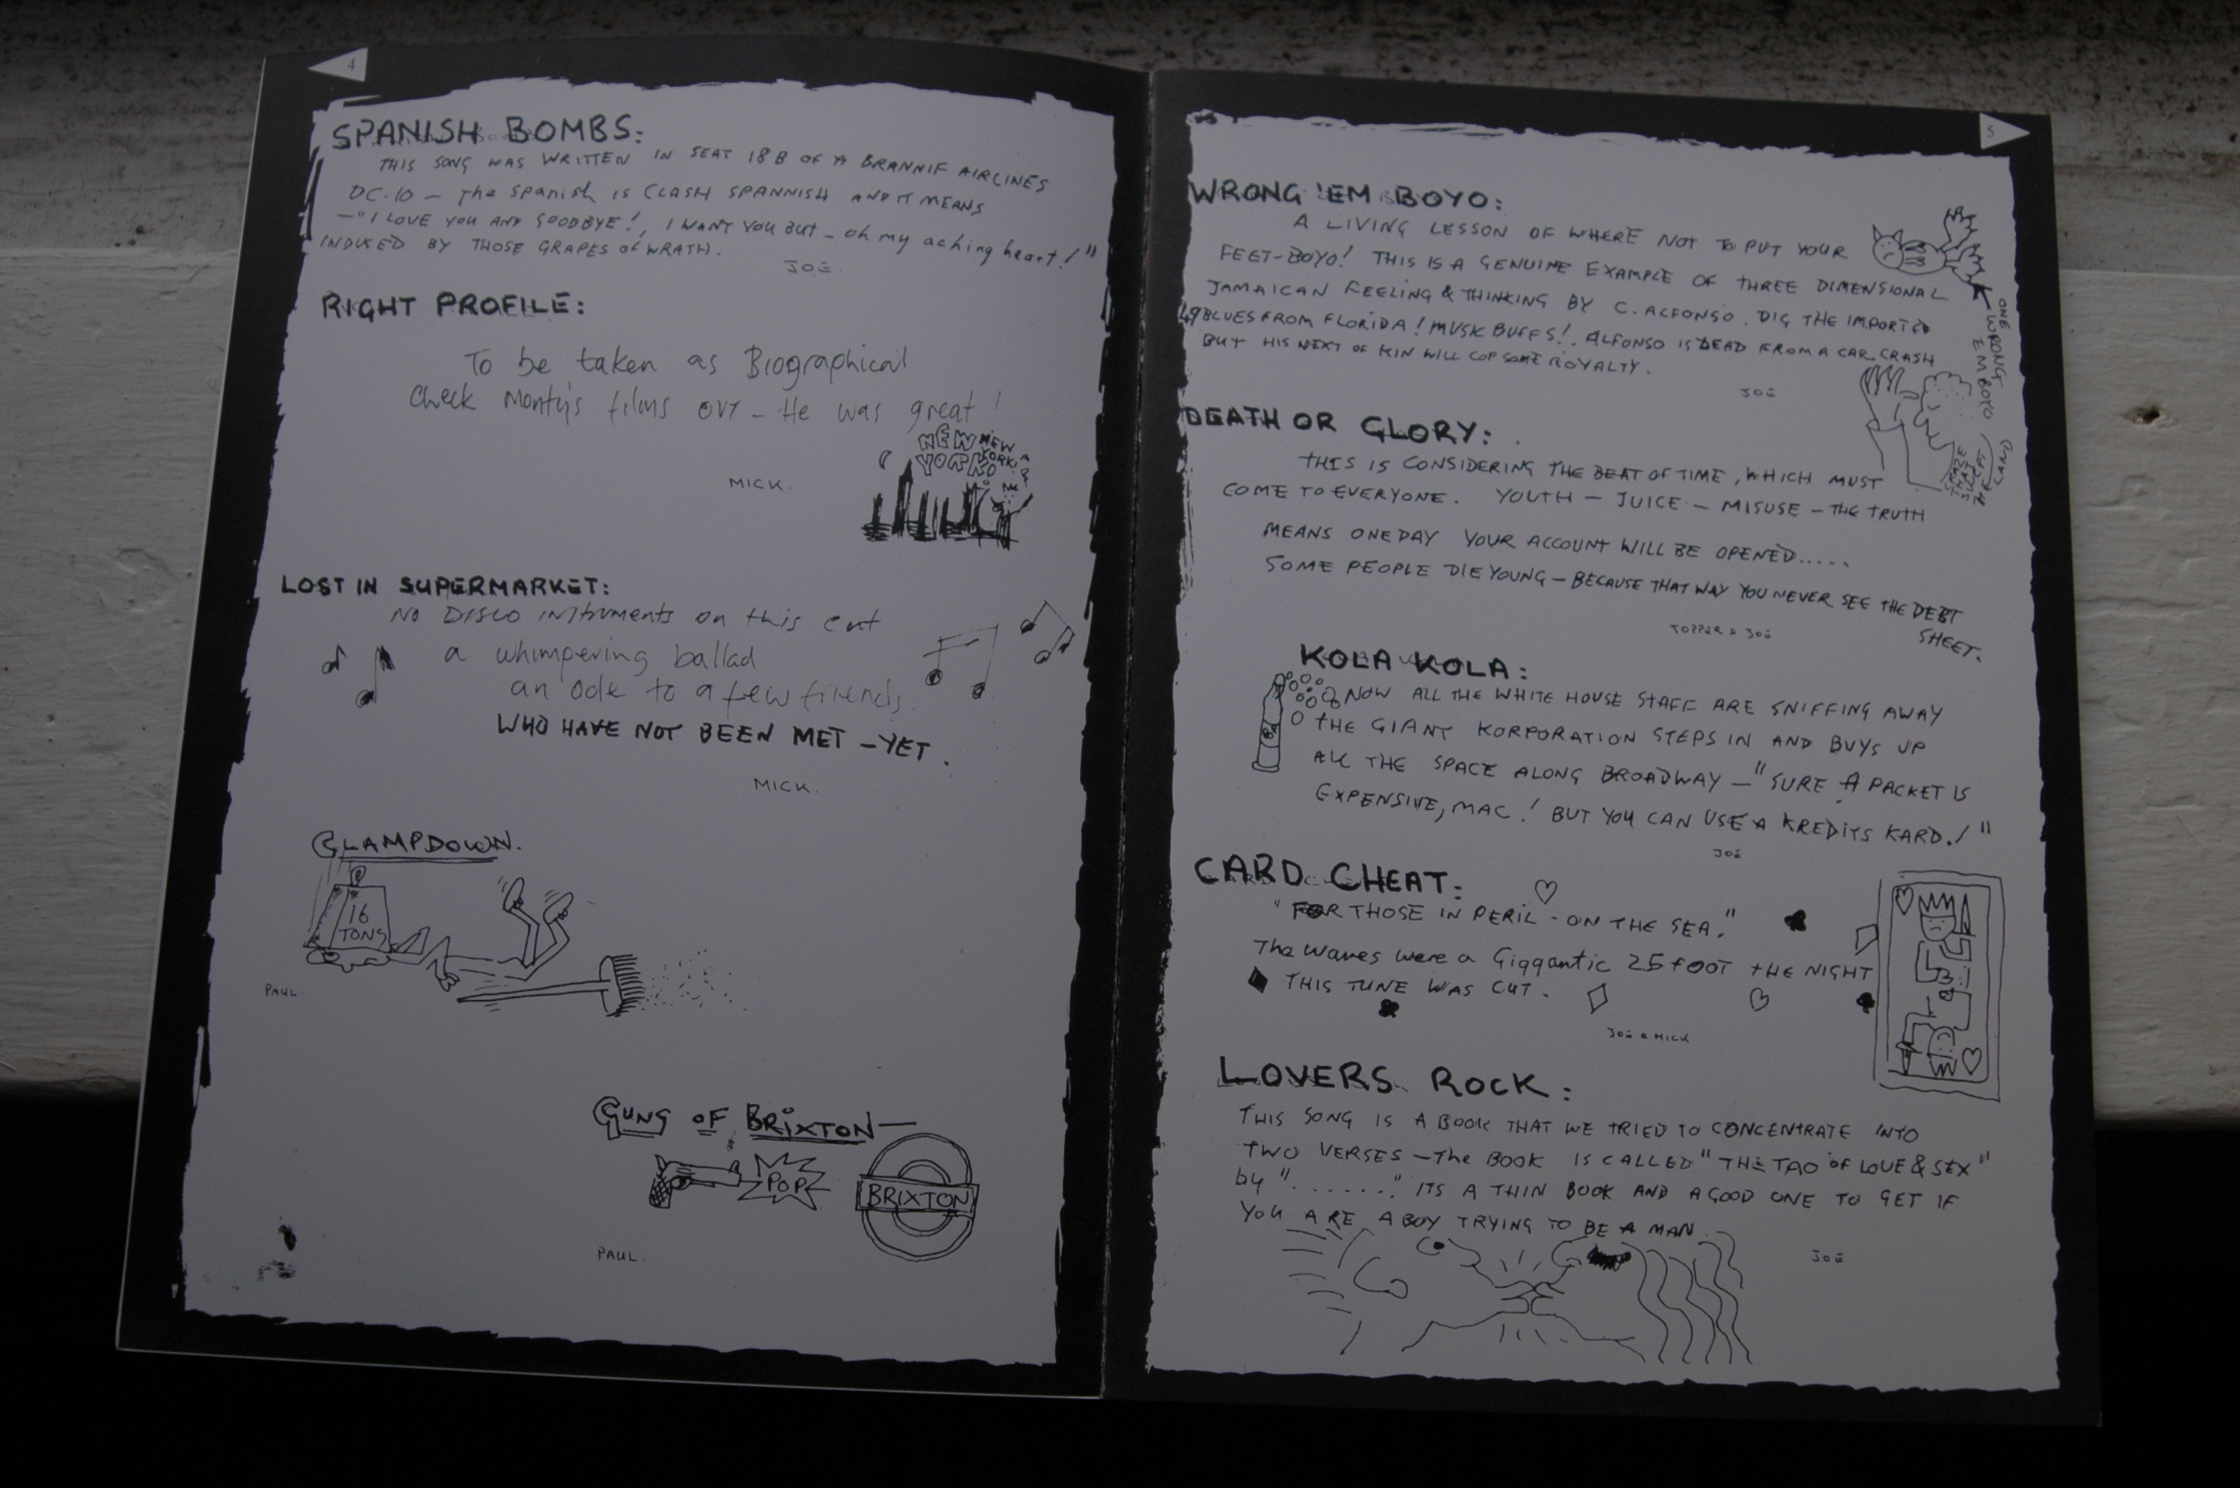 4
SPANISH BOMBS:
THIS SONG WAS WRITTEN IN SEAT 18B OF A BRANNIF AIRLINES
DC.10 – The Spanish is CLASH SPANNISH AND IT MEANS
–"I LOVE YOU AND GOODBYE!, I WANT YOU BUT – oh my aching heart!"
INDUCED BY THOSE GRAPES OF WRATH.
JOE.
RIGHT PROFILE:
To be taken as Biographical
Check Monty's films out – He was great!
NEW YORK!
NEW YORK!
MICK.
LOST IN SUPERMARKET:
No DISCO instruments on this cut
a whimpering ballad
an Ode to a few friends
WHO HAVE NOT BEEN MET – YET.
MICK.
CLAMPDOWN.
16
TONS
PAUL.
GUNS OF BRIXTON —
POP
BRIXTON
PAUL.
5
WRONG 'EM BOYO:
A LIVING LESSON OF WHERE NOT TO PUT YOUR
FEET-BOYO! THIS IS A GENUINE EXAMPLE OF THREE DIMENSIONAL
JAMAICAN FEELING & THINKING BY C. ALFONSO. DIG THE IMPORTED
BLUES FROM FLORIDA! MUSK BUFFS!. ALFONSO IS DEAD FROM A CAR CRASH
BUT HIS NEXT OF KIN WILL COP SOME ROYALTY.
JOE
ONE WRONG EM BOYO
DEATH OR GLORY:
THIS IS CONSIDERING THE BEAT OF TIME, WHICH MUST
COME TO EVERYONE. YOUTH – JUICE – MISUSE – THE TRUTH
MEANS ONE DAY YOUR ACCOUNT WILL BE OPENED.....
SOME PEOPLE DIE YOUNG – BECAUSE THAT WAY YOU NEVER SEE THE DEBT
SHEET.
TOPPER & JOE
KOLA KOLA:
NOW ALL THE WHITE HOUSE STAFF ARE SNIFFING AWAY
THE GIANT KORPORATION STEPS IN AND BUYS UP
ALL THE SPACE ALONG BROADWAY – "SURE A PACKET IS
EXPENSIVE, MAC! BUT YOU CAN USE A KREDITS KARD.!"
JOE
CARD CHEAT:
"FOR THOSE IN PERIL - ON THE SEA."
The waves were a Giggantic 25 FOOT THE NIGHT
THIS TUNE WAS CUT.
JOE & MICK
LOVERS ROCK:
THIS SONG IS A BOOK THAT WE TRIED TO CONCENTRATE INTO
TWO VERSES – The BOOK IS CALLED "THE TAO OF LOVE & SEX"
by "......." ITS A THIN BOOK AND A GOOD ONE TO GET IF
YOU ARE A BOY TRYING TO BE A MAN.
JOE